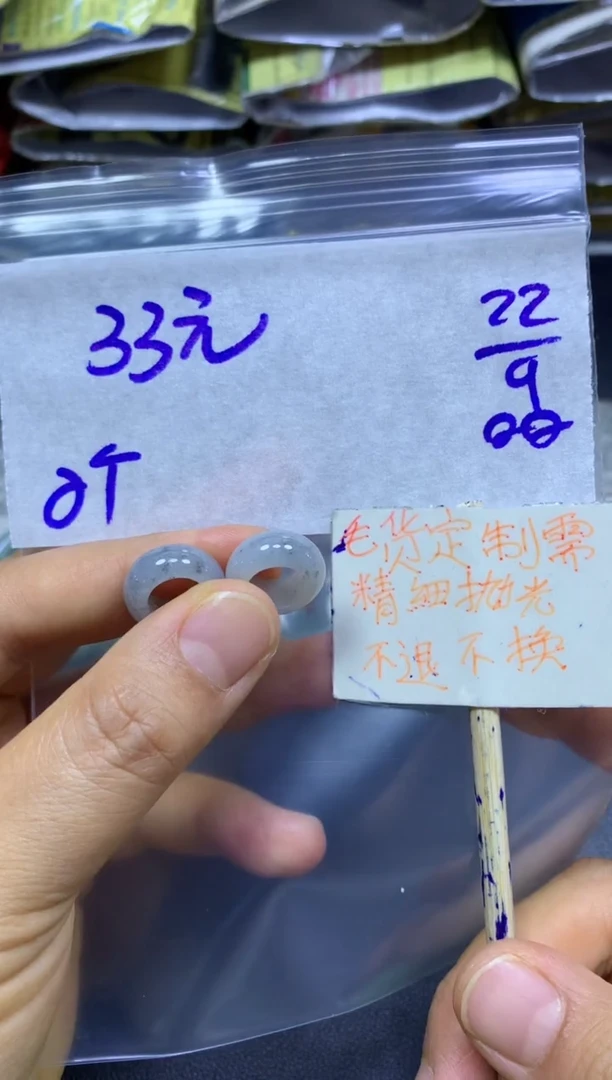 33元
22
9
2个
毛货定制需
精细抛光
不退不换